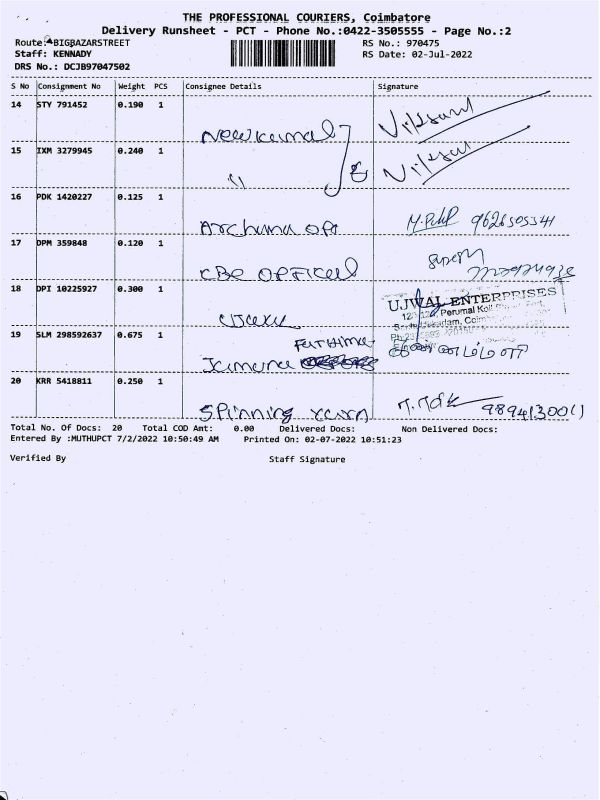 THE PROFESSIONAL COURIERS, Coimbatore
Delivery Runsheet - PCT - Phone No.:0422-3505555 - Page No.:2
Route: BIGBAZARSTREET RS No.: 970475
Staff: KENNADY RS Date: 02-Jul-2022
DRS No.: DCJB97047502
S No Consignment No Weight PCS Consignee Details Signature
14 STY 791452 0.190 1
15 IXM 3279945 0.240 1
"
16 PDK 1420227 0.125 1
Archana opt M. 9626505341
17 DPM 359848 0.120 1
CBE OPTICAL
18 DPI 10225927 0.300 1
UJWAL ENTERPRISES
Perumal Koil
19 SLM 298592637 0.675 1
Fathima
Jamuna
20 KRR 5418811 0.250 1
Spinning
Total No. Of Docs: 20 Total COD Amt: 0.00 Delivered Docs: Non Delivered Docs:
Entered By :MUTHUPCT 7/2/2022 10:50:49 AM Printed On: 02-07-2022 10:51:23
Verified By Staff Signature